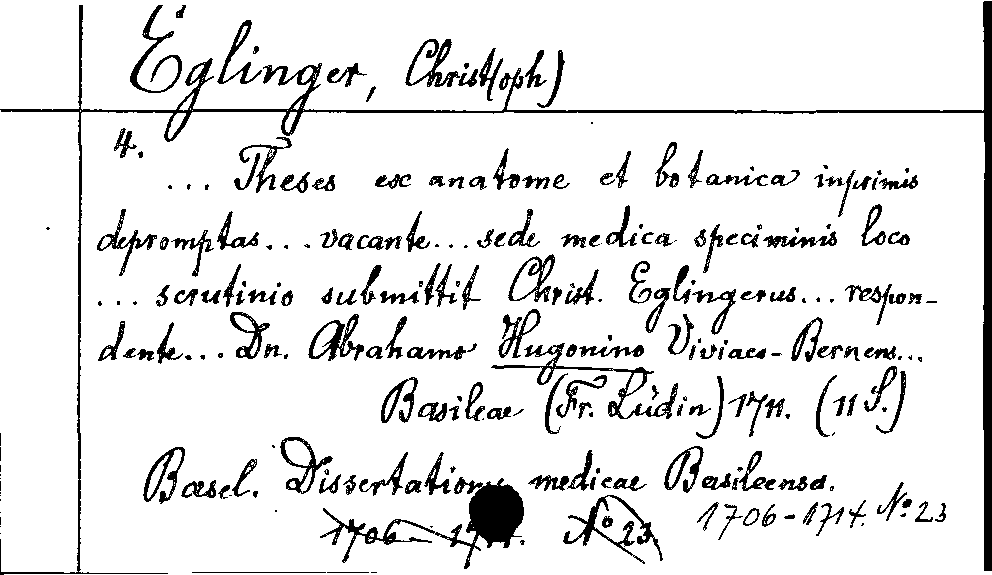 Eglinger, Christ(oph)
4.
... Theses ex anatome et botanica inprimis
depromptas... vacante... sede medica speciminis loco
... scrutinio submittit Christ. Eglingerus... respon-
dente... Dn. Abrahamo Hugonino Viviaco-Bernens...
Basileae (Fr. Lüdin) 1711. (11 S.)
Basel. Dissertationes medicae Basileenses.
1706 - 1714. No 23.
1706 - 1714. No. 23